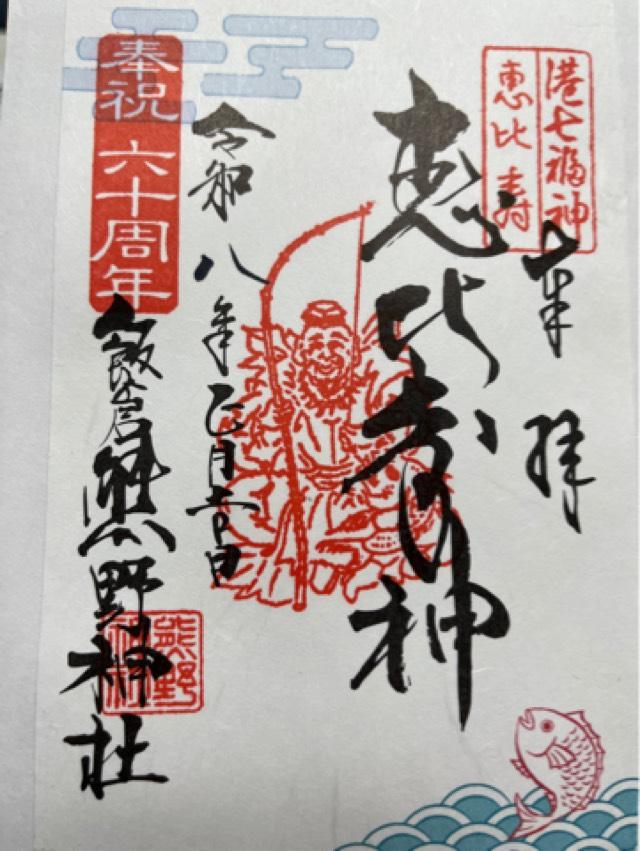 港七福神
恵比寿
奉拝
恵比寿神
令和八年正月六日
奉祝 六十周年
飯倉熊野神社
熊野
神社